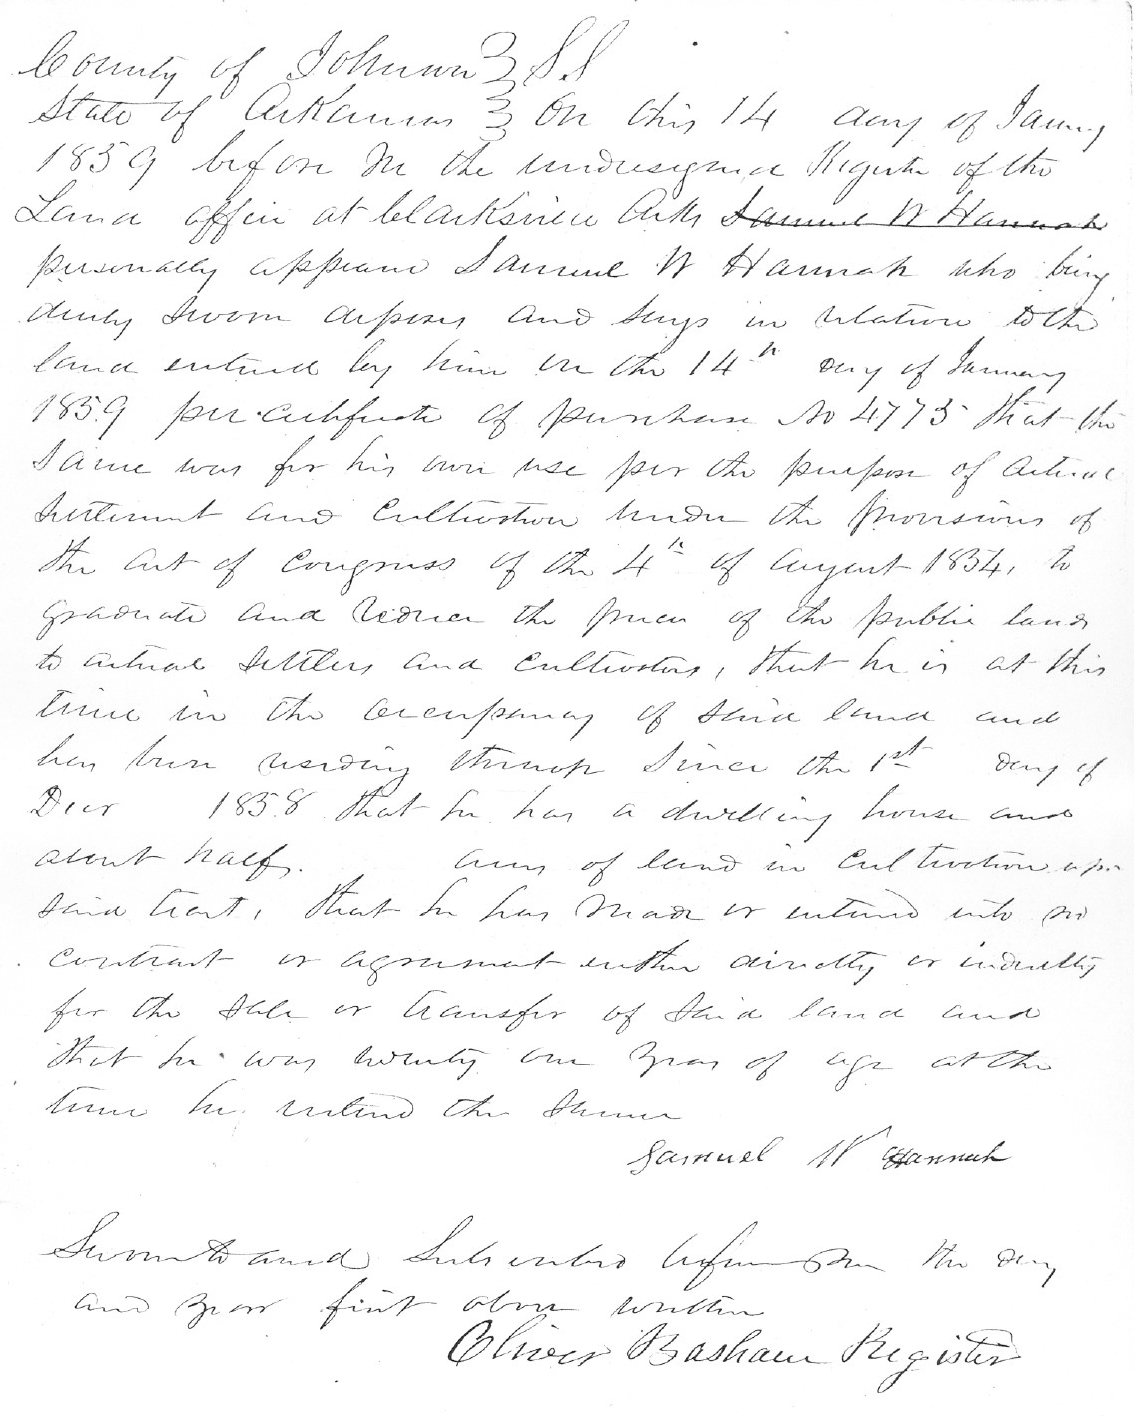 County of Johnson } SS
State of Arkansas } On this 14 day of January
1859 before Me the undersigned Register of the
Land office at Clarksville Arks Samuel W Hannah
personally appeared Samuel W Hannah who being
duly sworn deposes and says in relation to the
land entered by him on the 14th day of January
1859 per certificate of purchase No 4775 that the
same was for his own use per the purpose of actual
settlement and cultivation under the provisions of
the act of congress of the 4th of august 1854, to
graduate and reduce the price of the public lands
to actual settlers and cultivators, that he is at this
time in the occupancy of said land and
has been residing thereup since the 1st day of
Decr 1858 that he has a dwelling house and
about half acres of land in cultivation upon
said tract, that he has made or entered into no
contract or agreement either directly or indirectly
for the sale or transfer of said land and
that he was twenty one years of age at the
time he entered the same
Samuel W Hannah
Sworn to and Subscribed before me the day
and year first above written
Oliver Basham Register